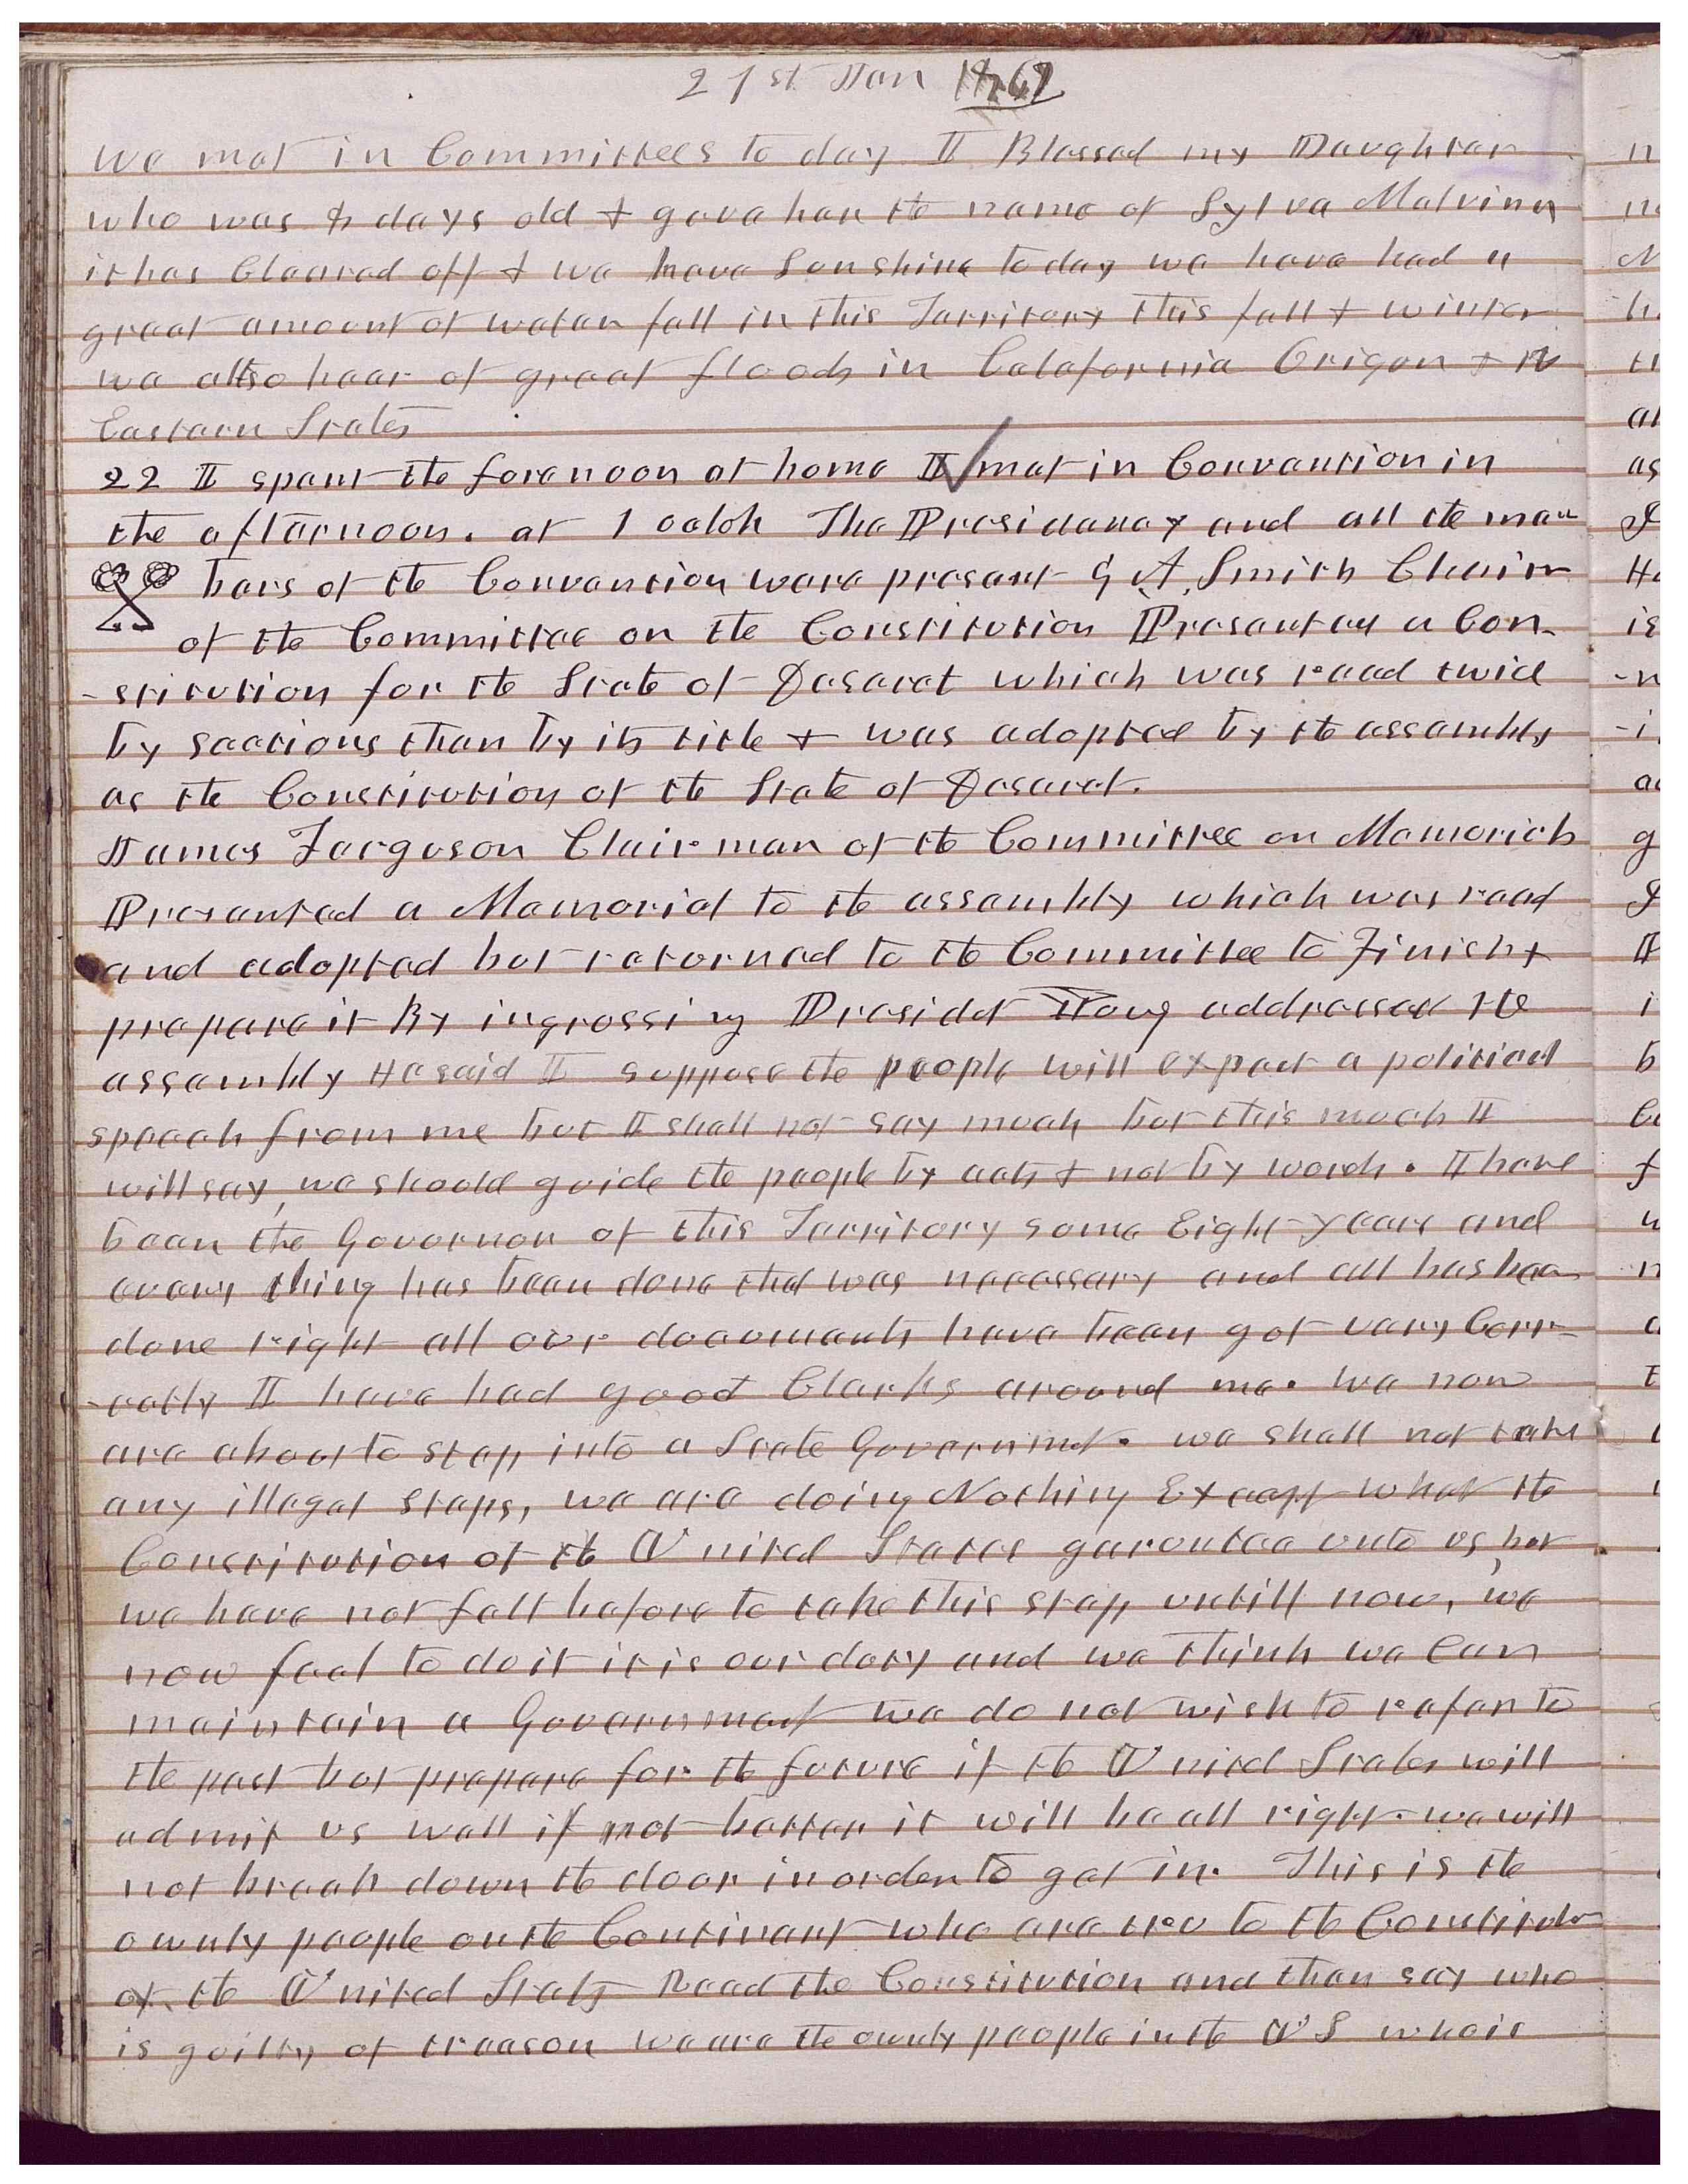 21st Jan 1862
we met in Committees to day I Blessed my Daughter
who was 8 days old & gave her the name of Sylva Malvina
it has Cleared off & we have Sunshine today we have had a
great amount of water fall in this Territory this fall & winter
we also hear of great floods in Calafornia Origon & the
Eastern States
22 I spent the forenoon at home I met in Convention in
the afternoon. at 1 oclok The Presidency and all the mem
bers of the Convention were present G. A. Smith Chairm
of the Committee on the Constitution Presented a Con-
-stitution for the State of Deseret which was read twice
by sections then by its title & was adopted by the assembly
as the Constitution of the State of Deseret.
James Ferguson Chairman of the Committee on Memorials
Presented a Memorial to the assembly which was read
and adopted but returned to the Committee to Finish &
prepare it By ingrossing Presidet Young addressed the
assembly He said I suppose the people will expect a political
speech from me but I shall not say much but this much I
will say, we should guide the people by acts & not by words. I have
been the Governor of this Territory some Eight years and
every thing has been done that was necessary and all has been
done right all our documents have been got very Corr-
-ectly I have had good Clarks around me. we now
are about to step into a State Governmet. we shall not take
any illegal steps, we are doing Nothing Except what the
Constitution of the United States garoutee unto us, but
we have not felt before to take this step untill now, we
now feel to do it it is our duty and we think we can
maintain a Government we do not wish to refer to
the past but prepare for the future if the United States will
admit us well if not better it will be all right. we will
not break down the door in order to get in. This is the
ownly people on the Continant who are treu to the Constitution
of the United States Read the Constitution and then say who
is guilty of treason we are the ownly people in the U S who is